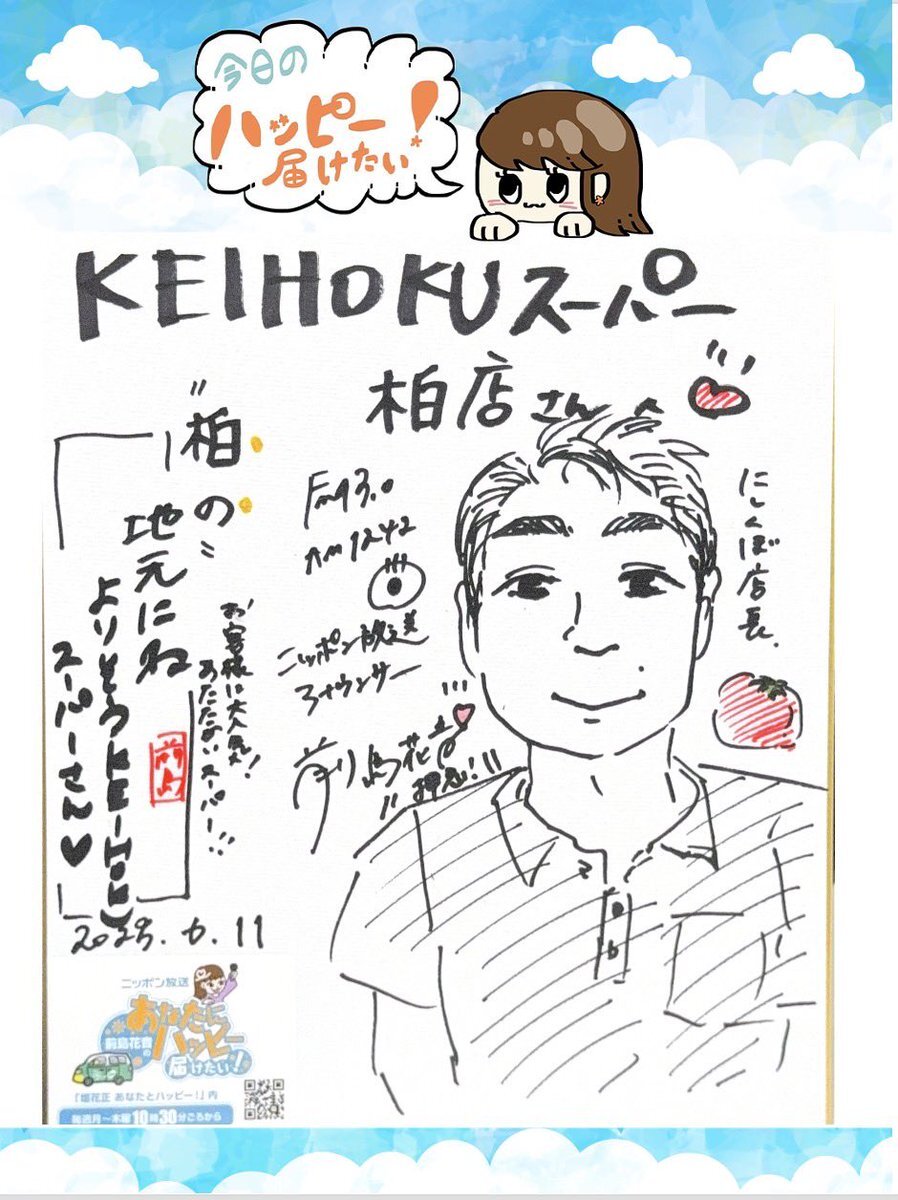 今日の
ハッピー!
届けたい!
KEIHOKUスーパー
柏店さんへ
"柏の"
地元にね
よりそうKEIHOKU
スーパーさん♥
お客様に大人気!
あたたかいスーパー!!
前島
2025.6.11
FM93.0
AM1242
ニッポン放送
アナウンサー
前島花音
押忍!!!
店長
ニッポン放送
前島花音の
あなたに
ハッピー
届けたい!
「垣花正 あなたとハッピー!」内
毎週月〜木曜10時30分ごろから